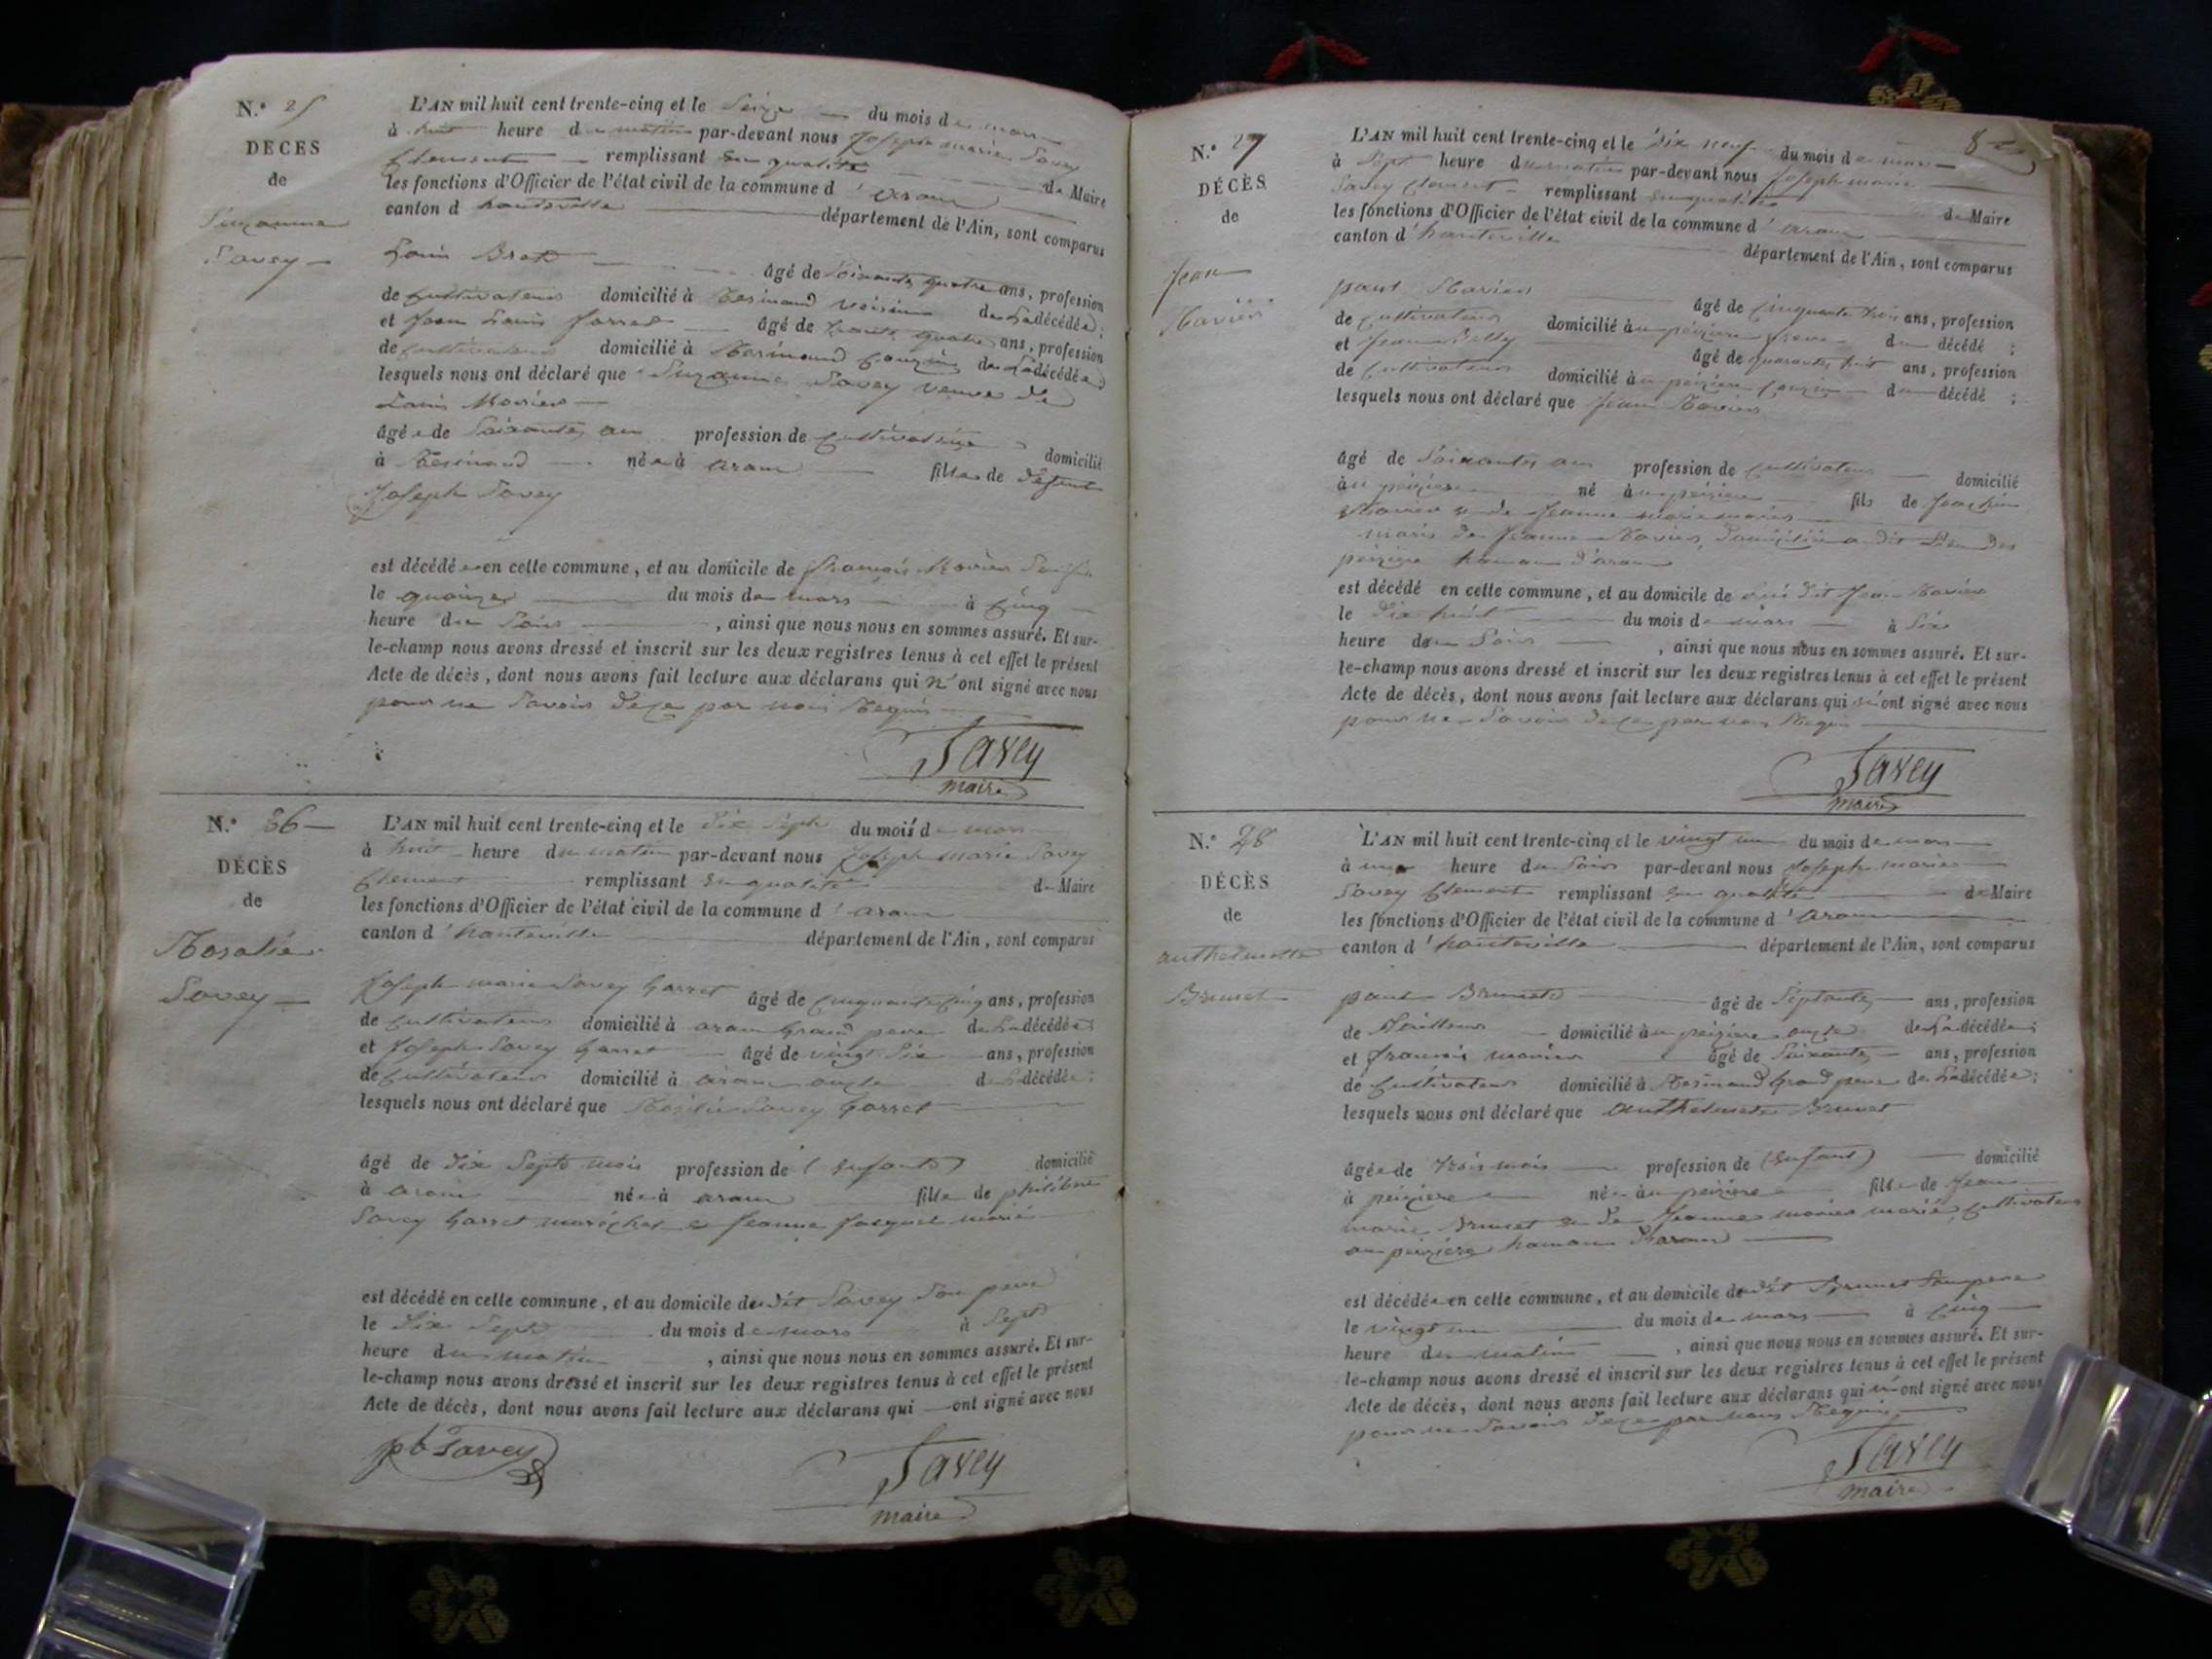 N.° 25
DÉCÈS
de
Suzanne
Savey
L'AN mil huit cent trente-cinq et le Seize du mois de mars
à huit heure du matin par-devant nous Joseph marie Savey
Clement remplissant en qualité de Maire
les fonctions d'Officier de l'état civil de la commune d'aranc
canton d hauteville département de l'Ain, sont comparus
Louis Bret âgé de Soixante quatre ans, profession
de Cultivateur domicilié à Resinand voisin de La décédée;
et Jean Louis âgé de trente quatre ans, profession
de Cultivateur domicilié à Resinand Couzin de La décédée;
lesquels nous ont déclaré que Suzanne Savey veuve de
Louis
âgée de Soixante ans profession de domicilié
à Resinand née à aranc fille de defunt
Joseph Savey
est décédée en cette commune, et au domicile de
le quinze du mois de mars à Cinq
heure du Soir, ainsi que nous nous en sommes assuré. Et sur-
le-champ nous avons dressé et inscrit sur les deux registres tenus à cet effet le présent
Acte de décès, dont nous avons fait lecture aux déclarans qui n'ont signé avec nous
pour ne Savoir de ce par nous Requis
Savey
maire
N.° 36
DÉCÈS
de
Rosalie
Savey
L'AN mil huit cent trente-cinq et le dix Sept du mois de mars
à huit heure du matin par-devant nous Joseph marie Savey
Clement remplissant en qualité de Maire
les fonctions d'Officier de l'état civil de la commune d'aranc
canton d'hauteville département de l'Ain, sont comparus
Joseph marie Savey Garret âgé de Cinquante Cinq ans, profession
de Cultivateur domicilié à aranc Grand pere de La décédée;
et Joseph Savey Garret âgé de vingt Six ans, profession
de Cultivateur domicilié à aranc oncle de La décédée;
lesquels nous ont déclaré que Rosalie Savey Garret
âgé de dix Sept mois profession de (enfant) domicilié
à aranc née à aranc fille de philibert
Savey Garret maréchal et Jeanne Jacquet marié
est décédé en cette commune, et au domicile du dit Savey Son pere
le dix Sept du mois de mars à Sept
heure du matin, ainsi que nous nous en sommes assuré. Et sur-
le-champ nous avons dressé et inscrit sur les deux registres tenus à cet effet le présent
Acte de décès, dont nous avons fait lecture aux déclarans qui ont signé avec nous
pt Savey
Savey
maire
N.° 27
DÉCÈS
de
Jean
L'AN mil huit cent trente-cinq et le dix neuf du mois de mars
à Sept heure du matin par-devant nous Joseph marie
Savey Clement remplissant en qualité de Maire
les fonctions d'Officier de l'état civil de la commune d'aranc
canton d'hauteville département de l'Ain, sont comparus
paul âgé de Cinquante trois ans, profession
de Cultivateur domicilié à frere du décédé;
et Jean âgé de quarante huit ans, profession
de Cultivateur domicilié à Couzin du décédé;
lesquels nous ont déclaré que Jean
âgé de Soixante ans profession de Cultivateur domicilié
né fils de Joachim
et de Jeanne
maris de Jeanne
hamau d'aranc
est décédé en cette commune, et au domicile de
le dix huit du mois de mars à Six
heure du Soir, ainsi que nous nous en sommes assuré. Et sur-
le-champ nous avons dressé et inscrit sur les deux registres tenus à cet effet le présent
Acte de décès, dont nous avons fait lecture aux déclarans qui n'ont signé avec nous
pour ne Savoir de ce par nous Requis
Savey
maire
N.° 28
DÉCÈS
de
anthelmette
Brunet
L'AN mil huit cent trente-cinq et le vingt un du mois de mars
à une heure du Soir par-devant nous Joseph marie
Savey Clement remplissant en qualité de Maire
les fonctions d'Officier de l'état civil de la commune d'aranc
canton d'hauteville département de l'Ain, sont comparus
paul Brunet âgé de Septante ans, profession
de domicilié au peiziere oncle de La décédée;
et françois âgé de Soixante ans, profession
de Cultivateur domicilié à Resinand Grand pere de La décédée;
lesquels nous ont déclaré que anthelmette Brunet
âgée de trois mois profession de (enfant) domicilié
à peiziere née au peiziere fille de Jean
marie Brunet et de Jeanne marié Cultivateur
au peiziere hamau d'aranc
est décédée en cette commune, et au domicile du dit Brunet Son pere
le vingt un du mois de mars à Cinq
heure du matin, ainsi que nous nous en sommes assuré. Et sur-
le-champ nous avons dressé et inscrit sur les deux registres tenus à cet effet le présent
Acte de décès, dont nous avons fait lecture aux déclarans qui n'ont signé avec nous
pour ne Savoir de ce par nous Requis
Savey
maire